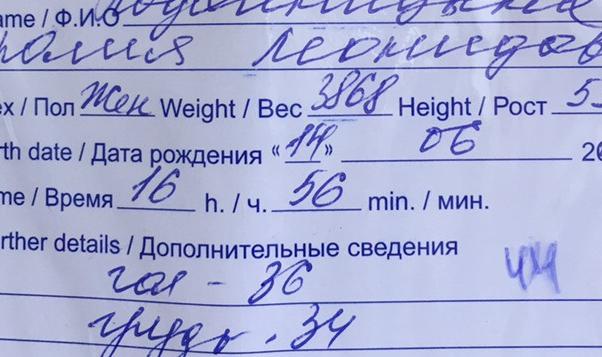 ame / Ф.И.О
ролия Леонидов
ex / Пол Жен Weight / Вес 3868 Height / Рост 5
rth date / Дата рождения «14» 06 20
me / Время 16 h. / ч. 56 min. / мин.
rther details / Дополнительные сведения
гол - 36
грудь. 34